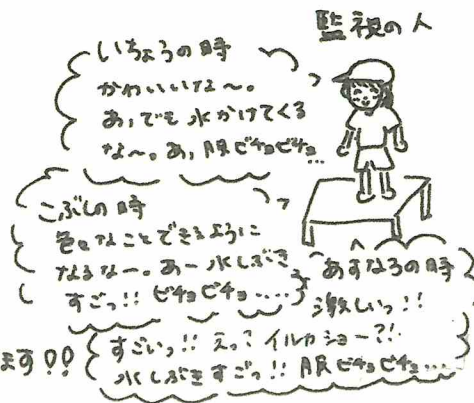 監視の人
いちょうの時
かわいいな〜。
あ、でも水かけてくる
な〜。あ、服ビチョビチョ…
こぶしの時
色々なことできるように
なるなー。あー水しぶき
すごっ!! ビチョビチョ....
あすなろの時
激しいっ!!
すごいっ!! えっ? イルカショー?!
水しぶきすごっ!! 服ビチョビチョ....
ます!!